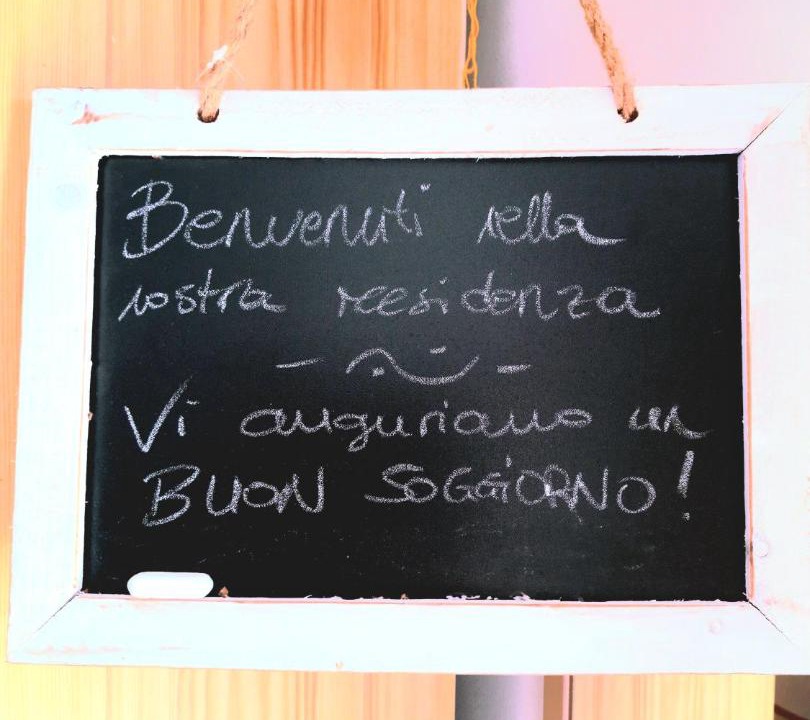 Benvenuti nella
nostra reesidenza
Vi auguriamo un
BUON SOGGIORNO!